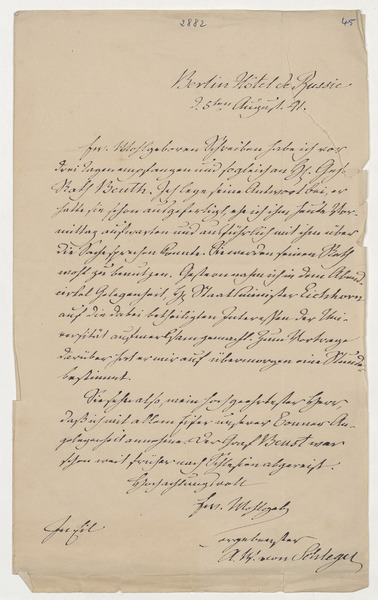 2882
45
Berlin Hôtel de Russie
d. 5ten August. 41.
Ew. Wohlgeboren Schreiben habe ich vor
drei Tagen empfangen und sogleich an H. Geh.
Rath Beuth. Ich lege seine Antwort bei, er
hatte sie schon ausgefertigt, ehe ich ihm heute Vor-
mittag aufwarten und ausführlich mit ihm über
die Sache sprechen konnte. Sie werden seinen Rath
wohl zu benutzen. Gestern nahm ich in dem Abend
cirkel Gelegenheit, H. Staatsminister Eichhorn
auf die dabei betheiligten Interessen der Uni-
versität aufmerksam gemacht. Zum Vortrage
darüber hat er mir auf übermorgen eine Stunde
bestimmt.
Sie sehen also, mein hochgeehrtester Herr
daß ich mit allem Eifer unsrer Bonner An-
gelegenheit annehme. Der Graf Beust war
schon weit früher nach Schlesien abgereist.
Hochachtungsvoll
Ew. Wohlgeb
In Eil
ergebenster
A. W. von Schlegel